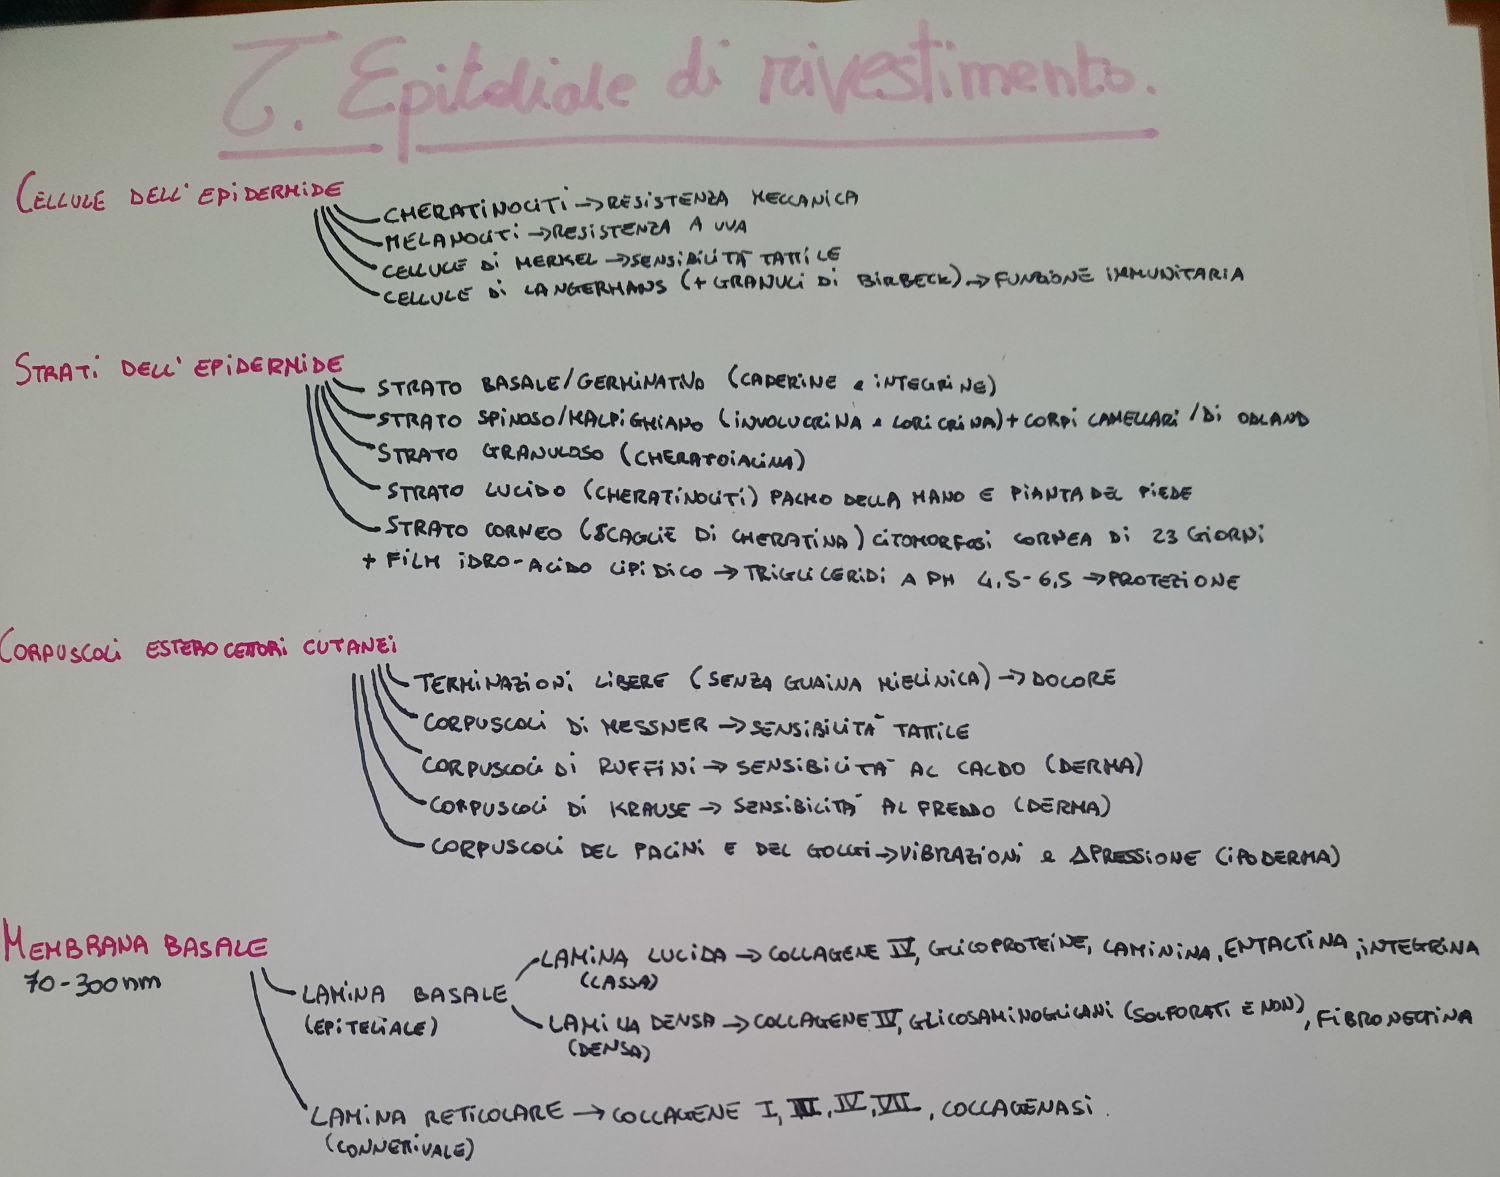 T. Epiteliale di rivestimento.
CELLULE DELL'EPIDERMIDE
CHERATINOCITI → RESISTENZA MECCANICA
MELANOCITI → RESISTENZA A UVA
CELLULE DI MERKEL → SENSIBILITÀ TATTILE
CELLULE DI LANGERHANS (+ GRANULI DI BIRBECK) → FUNZIONE IMMUNITARIA
STRATI DELL'EPIDERMIDE
STRATO BASALE/GERMINATIVO (CADERINE e INTEGRINE)
STRATO SPINOSO/MALPIGHIANO (INVOLUCRINA e LORICRINA) + CORPI LAMELLARI / DI ODLAND
STRATO GRANULOSO (CHERATOIALINA)
STRATO LUCIDO (CHERATINOCITI) PALMO DELLA MANO E PIANTA DEL PIEDE
STRATO CORNEO (SCAGLIE DI CHERATINA) CITOMORFOSI CORNEA DI 23 GIORNI
+ FILM IDRO-ACIDO LIPIDICO → TRIGLICERIDI A PH 4,5-6,5 → PROTEZIONE
CORPUSCOLI ESTEROCETTORI CUTANEI
TERMINAZIONI LIBERE (SENZA GUAINA MIELINICA) → DOLORE
CORPUSCOLI DI MESSNER → SENSIBILITÀ TATTILE
CORPUSCOLI DI RUFFINI → SENSIBILITÀ AL CALDO (DERMA)
CORPUSCOLI DI KRAUSE → SENSIBILITÀ AL FREDDO (DERMA)
CORPUSCOLI DEL PACINI E DEL GOLGI → VIBRAZIONI e ΔPRESSIONE (IPODERMA)
MEMBRANA BASALE
70-300nm
LAMINA BASALE
(EPITELIALE)
LAMINA LUCIDA → COLLAGENE IV, GLICOPROTEINE, LAMININA, ENTACTINA, INTEGRINA
(LASSA)
LAMINA DENSA → COLLAGENE IV, GLICOSAMINOGLICANI (SOLFORATI E NON), FIBRONECTINA
(DENSA)
LAMINA RETICOLARE → COLLAGENE I, III, IV, VII, COLLAGENASI.
(CONNETTIVALE)